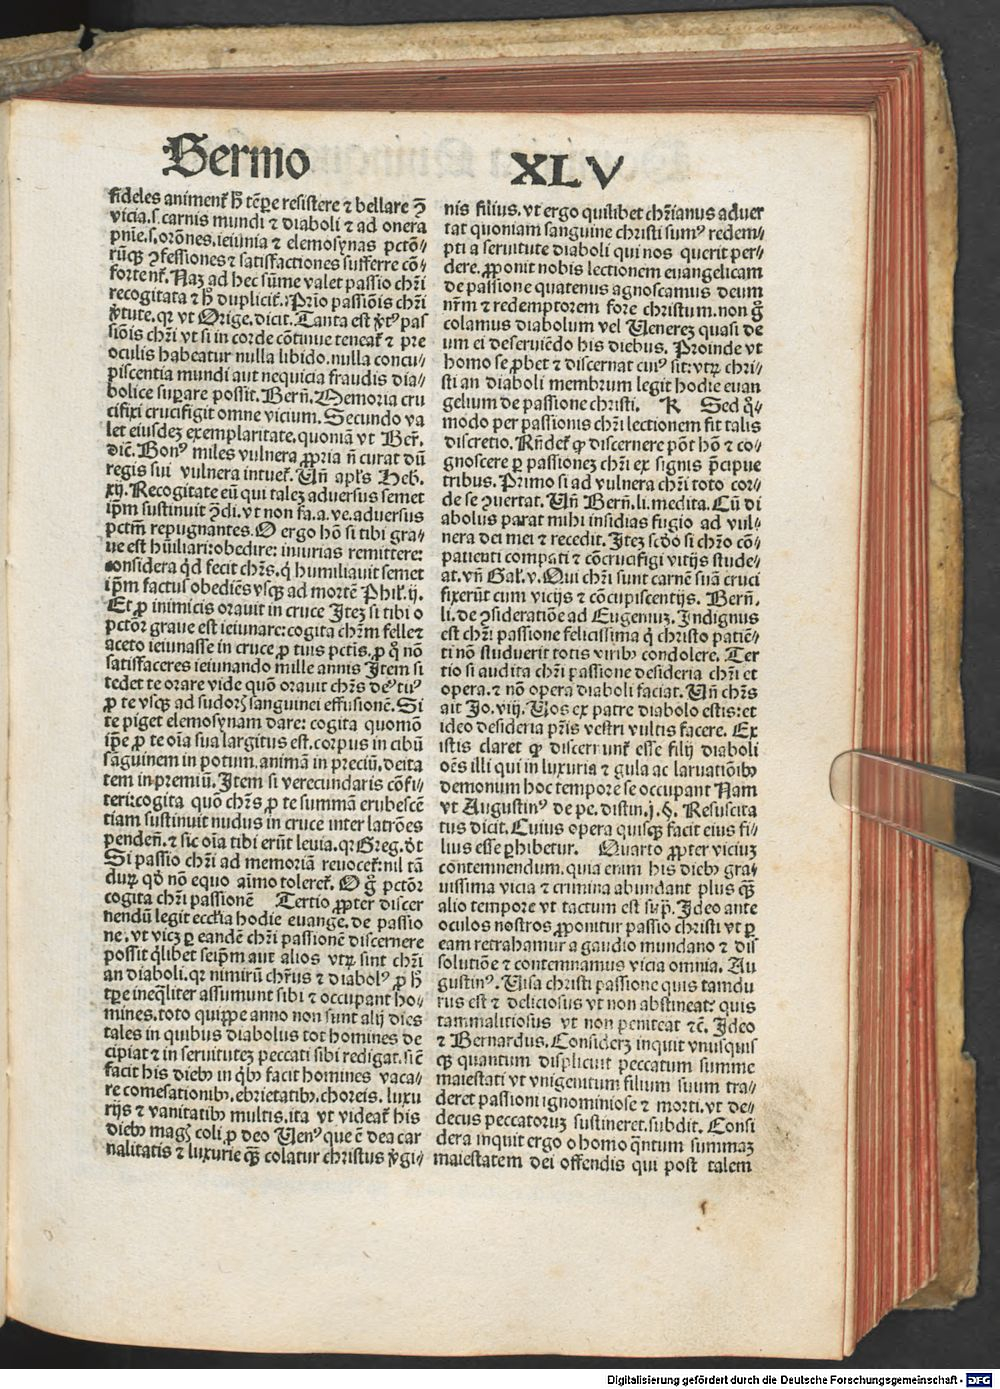 Sermo XLV
fideles animent᷑ hᷤ tēꝑe resistere ⁊ bellare ꝯ̄
vicia.s. carnis mundi ⁊ diaboli ⁊ ad onera
pn̄ie.s. orōnes. ieiunia ⁊ elemosynas pctō⸗
rūqꝫ ꝯfessiones ⁊ satisfactiones sufferre cō⸗
fortent᷑. Naꝫ ad hec sūme valet passio chr̄i
recogitata ⁊ hᷤ duplicit᷑. Pr̄io passiōis chr̄i
v̓tute. qꝛ vt Orige. dicit. Tanta est v̓tꝰ pas
siōis chr̄i vt si in corde cōtinue teneat᷑ ⁊ pre
oculis habeatur nulla libido. nulla concu⸗
piscentia mundi aut nequicia fraudis dia⸗
bolice suꝑare possit. Bern̄. Memoria cru
cifixi crucifigit omne vicium. Secundo va
let eiusdeꝫ exemplaritate. quoniā vt Ber̄.
dic̄. Bonꝰ miles vulnera ꝓpria n̄ curat dū
regis sui vulnera intuet᷑. Vn̄ apl's Heb.
xij. Recogitate eū qui taleꝫ aduersus semet
ip̄m sustinuit ꝯdi. vt non fa. a. ve. aduersus
pctm̄ repugnantes. O ergo hō si tibi gra⸗
ue est hūiliari: obedire: iniurias remittere:
considera qd̓ fecit chr̄s. q̇ humiliauit semet
ip̄m factus obediēs vsqꝫ ad mortē Phil̓. ij.
Et ꝓ inimicis orauit in cruce Iteꝫ si tibi o
pctōr graue est ieiunare: cogita chr̄m felle ⁊
aceto ieiunasse in cruce ꝓ tuis pctīs. ꝓ q̇ nō
satisfaceres ieiunando mille annis Item si
tedet te orare vide quō orauit chr̄s
ꝓ te vsqꝫ ad sudorꝫ sanguinei effusionē. Si
te piget elemosynam dare: cogita quomō
ip̄e ꝓ te oīa sua largitus est. corpus in cibū
sāguinem in potum. animā in preciū. deita
tem in premiū. Item si verecundaris cōfi⸗
teri: cogita quō chr̄s ꝓ te summā erubescē
tiam sustinuit nudus in cruce inter latrōes
penden̄. ⁊ sic oīa tibi erūt leuia. qꝛ Greg. dt̄
Si passio chr̄i ad memoriā reuocet᷑: nil tā
duꝝ qd̓ nō equo aīmo toleret᷑. O g̊ pctōr
cogita chr̄i passionē Tertio ꝓpter discer
nendū legit eccl̓ia hodie euange. de passio
ne. vt vicꝫ ꝑ eandē chr̄i passionē discernere
possit q̇libet seip̄m aut alios vtꝝ sint chr̄i
an diaboli. qꝛ nimirū chr̄us ⁊ diabolꝰ ꝓ hᷤ
tꝑe ineq̄liter assumunt sibi ⁊ occupant ho⸗
mines. toto quippe anno non sunt alij dies
tales in quibus diabolus tot homines de
cipiat ⁊ in seruituteꝫ peccati sibi redigat. sic̄
facit his diebꝰ in q̇bꝰ facit homines vaca⸗
re comesationibꝰ. ebrietatibꝰ. choreis. luxu
rijs ⁊ vanitatibꝰ multis. ita vt videat᷑ his
diebꝰ mag̓ coli ꝓ deo Venꝰ que ē dea car
nalitatis ⁊ luxurie qꝫ̄ colatur christus v̓gi⸗
nis filius. vt ergo quilibet chr̄ianus aduer
tat quoniam sanguine christi sumꝰ redem⸗
pti a seruitute diaboli qui nos querit per⸗
dere. ꝓponit nobis lectionem euangelicam
de passione quatenus agnoscamus deum
nr̄m ⁊ redemptorem fore christum. non g̊
colamus diabolum vel Venereꝫ quasi de
um ei deseruiēdo his diebus. Proinde vt
homo se ꝓbet ⁊ discernat cuiꝰ sit: vtꝝ chri⸗
sti an diaboli membrum legit hodie euan
gelium de passione christi. K Sed q̇⸗
modo per passionis chr̄i lectionem fit talis
discretio. Rn̄det᷑ ꝙ discernere pōt hō ⁊ co⸗
gnoscere ꝑ passioneꝫ chr̄i ex signis p̄cipue
tribus. Primo si ad vulnera chr̄i toto cor⸗
de se ꝯuertat. Vn̄ Bern̄. li. medita. Cū di
abolus parat mihi insidias fugio ad vul⸗
nera dei mei ⁊ recedit. Iteꝫ sc̄do si chr̄o cō⸗
patienti compati ⁊ cōcrucifigi vitijs stude⸗
at. vn̄ Gal̓. v. Qui chr̄i sunt carnē suā cruci
fixerūt cum vicijs ⁊ cōcupiscentijs. Bern̄.
li. de ꝯsideratiōe ad Eugeniuꝫ. Indignus
est chr̄i passione felicissima q̇ christo patiē⸗
ti nō studuerit totis viribꝰ condolere. Ter
tio si audita chr̄i passione desideria chr̄i et
opera. ⁊ nō opera diaboli faciat. Vn̄ chr̄s
ait Jo. viij. Vos ex patre diabolo estis: et
ideo desideria pr̄is vestri vultis facere. Ex
istis claret ꝙ discernunt᷑ esse filij diaboli
oēs illi qui in luxuria ⁊ gula ac laruatiōibꝰ
demonum hoc tempore se occupant Nam
vt Augustinꝰ de pe. distin. j. §. Resuscita
tus dicit. Cuius opera quisqꝫ facit eius fi⸗
lius esse ꝑhibetur. Quarto ꝓpter viciuꝫ
contemnendum. quia enim his diebꝰ gra⸗
uissima vicia ⁊ crimina abundant plus qꝫ̄
alio tempore vt tactum est sup̄. Ideo ante
oculos nostros ꝓponitur passio christi vt ꝑ
eam retrahamur a gaudio mundano ⁊ dis
solutiōe ⁊ contemnamus vicia omnia. Au
gustinꝰ. Visa christi passione quis tam du
rus est ⁊ deliciosus vt non abstineat: quis
tam malitiosus vt non peniteat ⁊c̄. Ideo
⁊ Bernardus. Consideꝝ inquit vnusquis
qꝫ quantum displicuit peccatum summe
maiestati vt vnigenitum filium suum tra⸗
deret passioni ignominiose ⁊ morti. vt de⸗
decus peccatoruꝫ sustineret. subdit. Consi
dera inquit ergo o homo q̄ntum summaꝫ
maiestatem dei offendis qui post talem
Digitalisierung gefördert durch die Deutsche Forschungsgemeinschaft - DFG